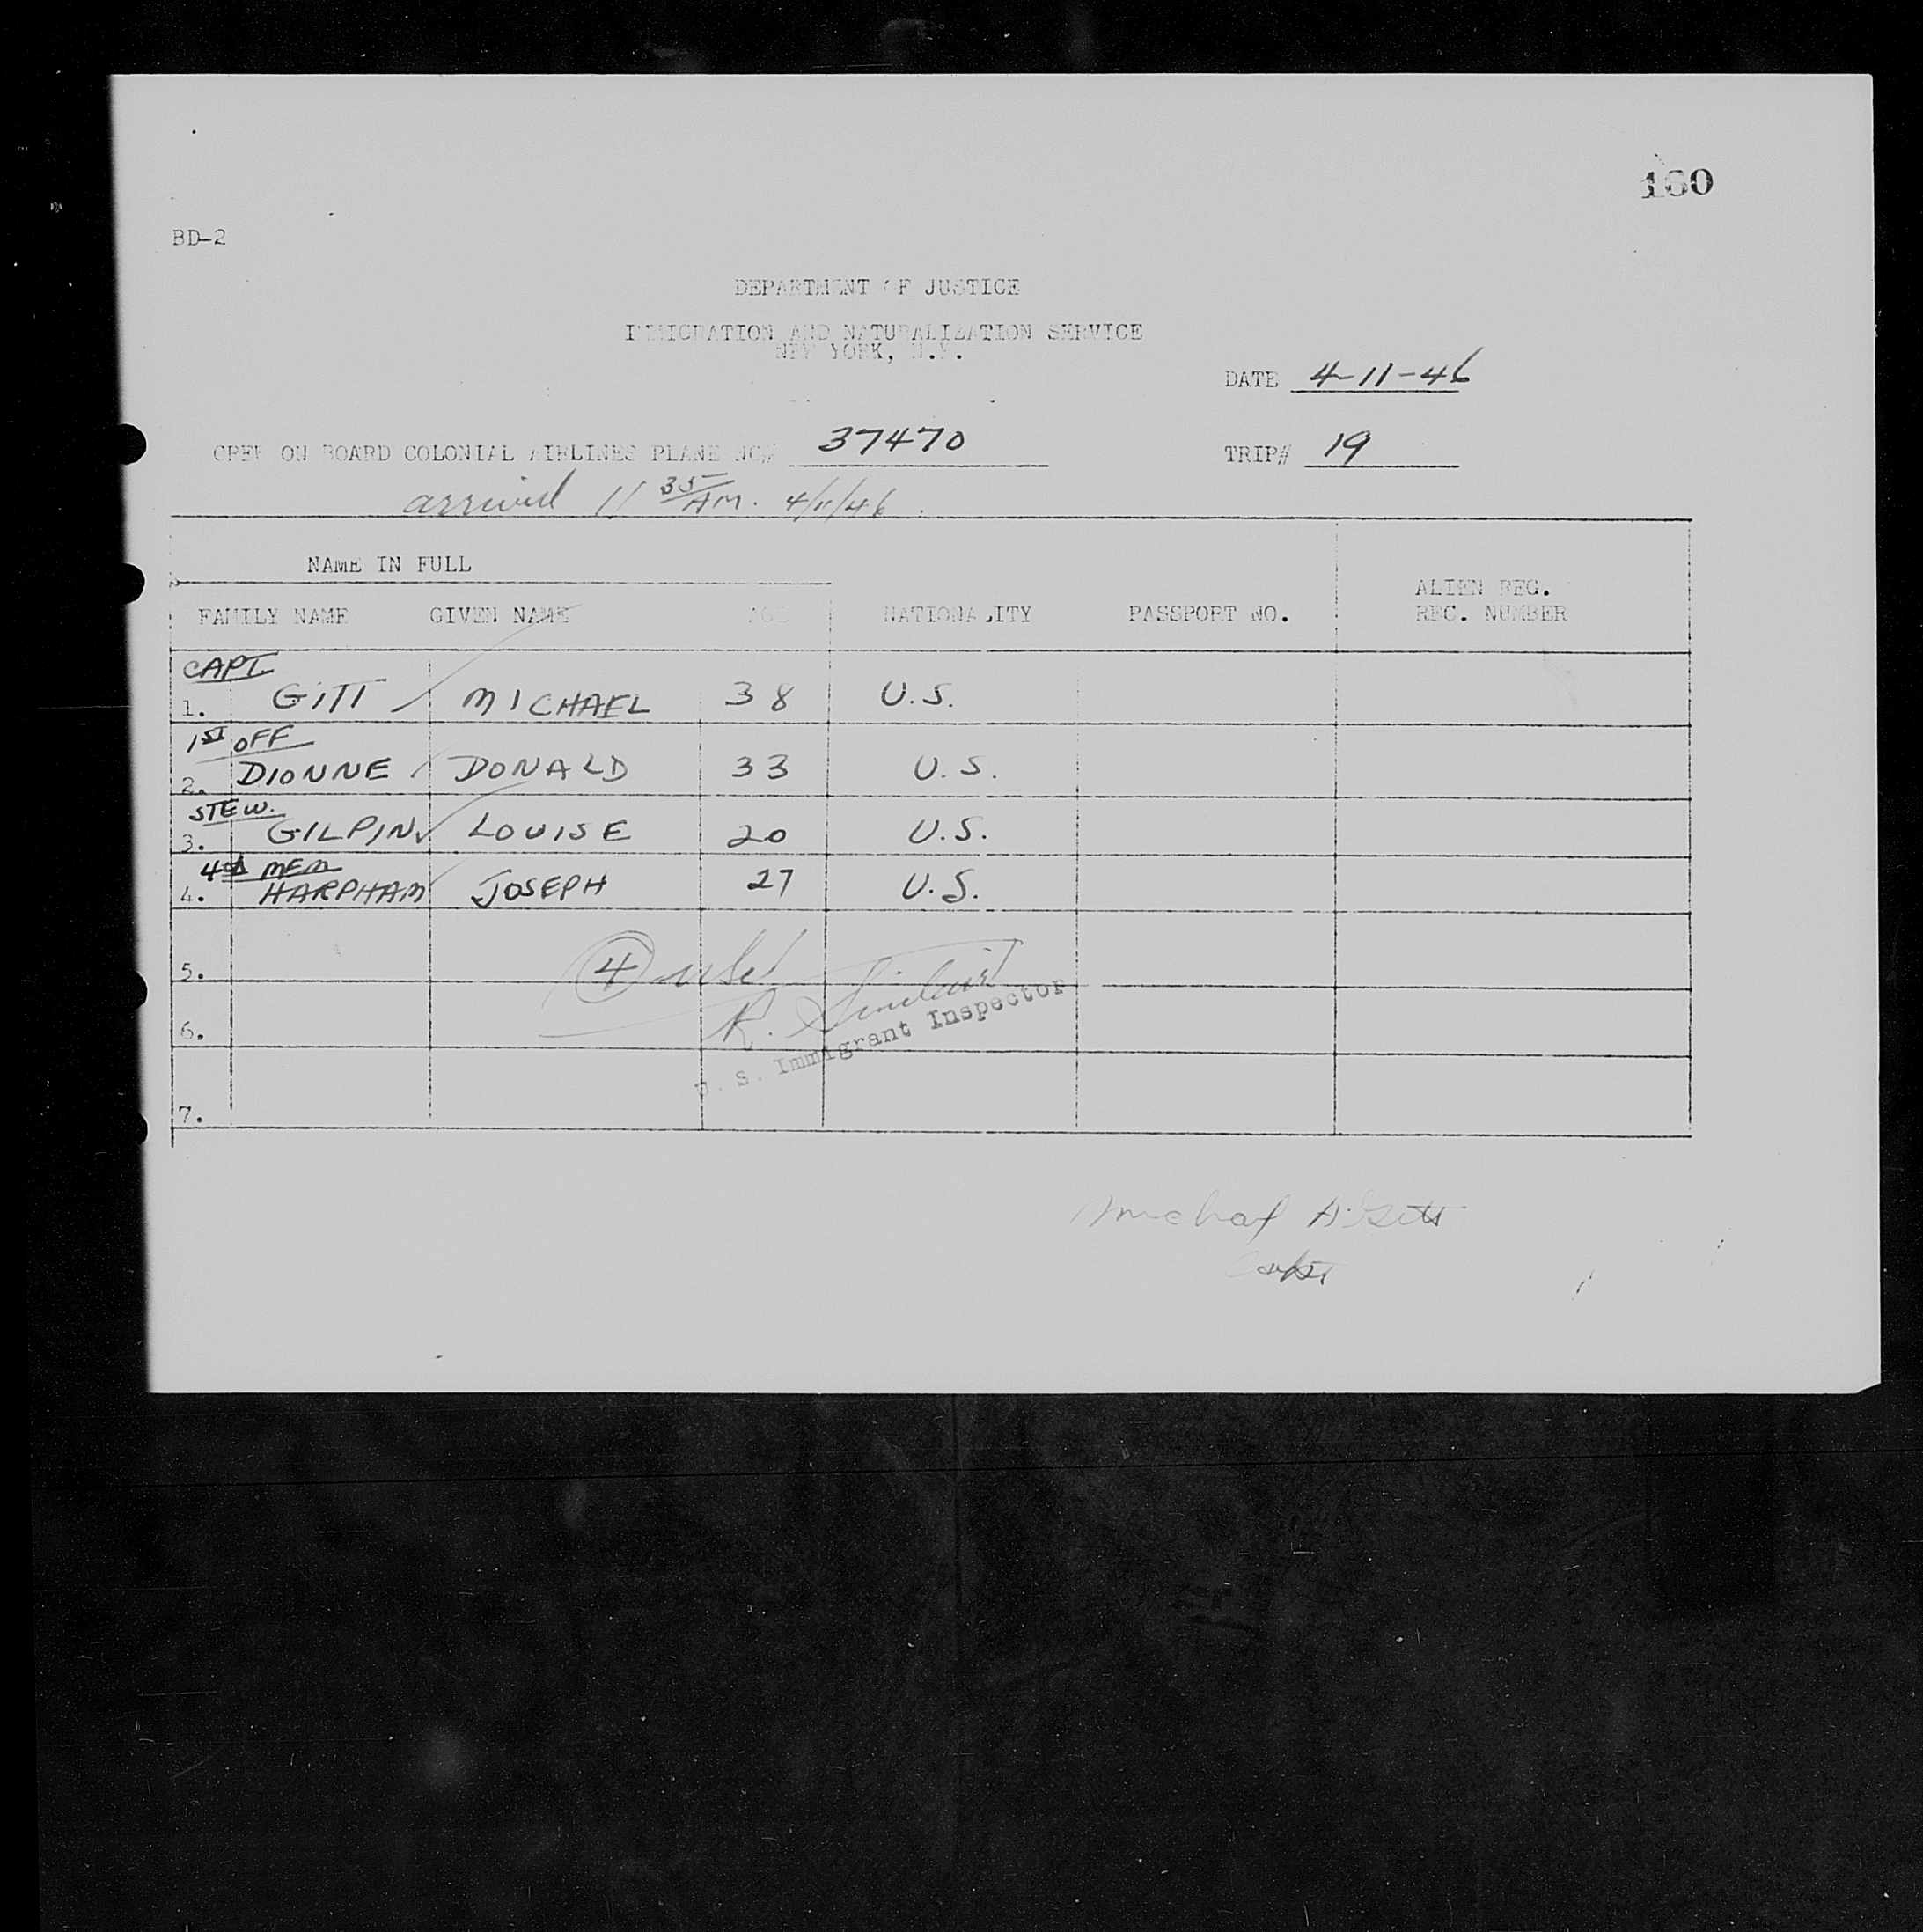 160
BD-2
DEPARTMENT OF JUSTICE
IMMIGRATION AND NATURALIZATION SERVICE
NEW YORK, N.Y.
DATE 4-11-46
CREW ON BOARD COLONIAL AIRLINES PLANE NO# 37470 TRIP# 19
arrived 11 35 AM. 4/11/46.
NAME IN FULL
FAMILY NAME GIVEN NAME AGE NATIONALITY PASSPORT NO. ALIEN REG. REC. NUMBER
CAPT.
1. GITT MICHAEL 38 U.S.
1ST OFF
2. DIONNE DONALD 33 U.S.
STEW.
3. GILPIN LOUISE 20 U.S.
4th MEM
4. HARPHAM JOSEPH 27 U.S.
5. 4 usc
R. Sinclair
6.
U. S. Immigrant Inspector
7.
Michael A. Gitt
Capt.